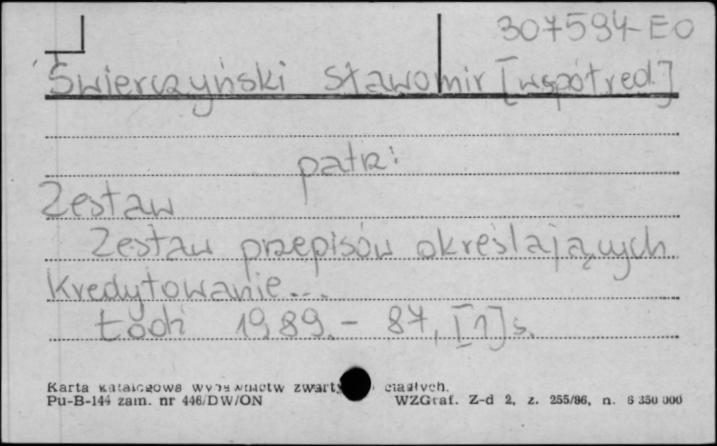 307594-EO
Świerczyński Sławomir [współred.]
patrz:
Zestaw
Zestaw przepisów określających
kredytowanie...
Łódź 1989.- 87, [1] s.
Karta katalogowa wydawnictw ciągłych.
Pu-B-144 zam. nr 446/DW/ON WZGraf. Z-d 2, z. 255/86, n. 6 350 000